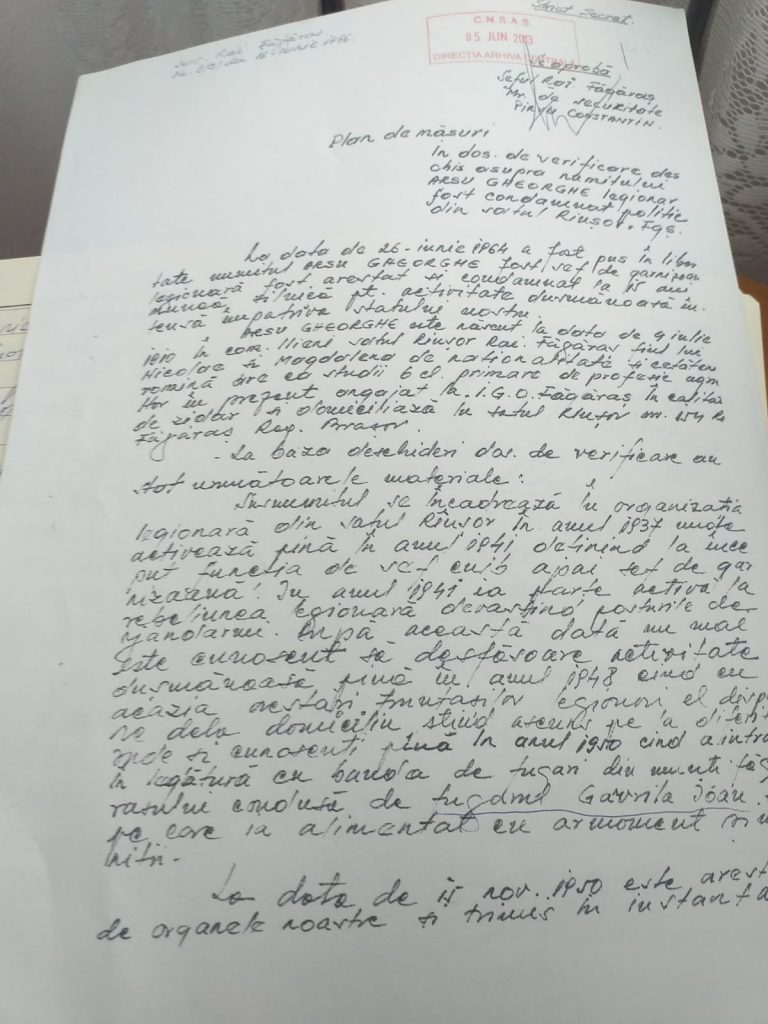 Strict Secret.
C.N.S.A.S
05 JUN 2013
DIRECȚIA ARHIVA CENTRALĂ
Rai. Făgăraș
din iunie 1966.
Se aprobă
Șeful Rai. Făgăraș
Mr. de securitate
PÎRVU CONSTANTIN.
Plan de măsuri
In dos. de verificare des
chis asupra numitului
ARSU GHEORGHE legionar
fost condamnat politic
din satul Rîușor. Fgș.
La data de 26-iunie 1964 a fost pus în liber
tate numitul ARSU GHEORGHE fost șef de garnizoan
legionară fost arestat și condamnat la 15 ani
muncă silnică pt. activitate dușmănoasă in
tensă împotriva statului nostru.
ARSU GHEORGHE este născut la data de 9 iulie
1910 în com. Ileni satul Rîușor Rai. Făgăraș fiul lui
Nicolae și Magdalena de naționalitate și cetățen
romînă are ca studii 6 cl. primare de profesie agri
tor în prezent angajat la I.G.O. Făgăraș în calitat
de zidar și domiciliază în satul Rîușor nr. 154 R
Făgăraș Reg. Brașov.
- La baza deschideri dos. de verificare au
stat următoarele materiale:
Susnumitul se încadrează în organizația
legionară din satul Rîușor în anul 1937 unde
activează pînă în anul 1941 deținind la înce
put funcția de șef cuib apoi șef de gar
nizoană. In anul 1941 ia parte activă la
rebeliunea legionară devastînd posturile de
jandarmi. După această dată nu mai
este cunoscut să desfășoare activitate
dușmănoasă pînă în anul 1948 cînd cu
ocazia arestari fruntașilor legionari el disp
re dela domiciliu stînd ascuns pe la diferit
rude și cunoscuti pînă în anul 1950 cînd a intra
în legătură cu banda de fugari din munti făg
rașului condusă de fugarul Gavrila Ioan.
pe care ia alimentat cu armament și mu
niții.-
La data de 15 nov. 1950 este arest
de organele noastre și trimis în instanță